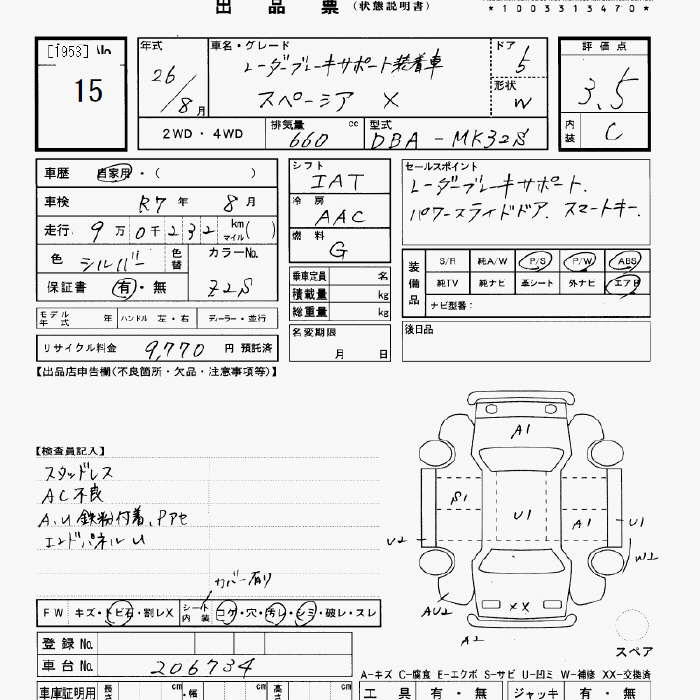 出 品 票 (状態説明書)
*1003313470*
[1953]
15
年式
26/8月
車名・グレード
レーダーブレーキサポート装着車
スペーシア X
ドア
5
形状
W
評 価 点
3.5
内装
C
2WD・4WD
排気量
660 cc
型式
DBA-MK32S
車歴 自家用・( )
車検 R7年 8月
走行 9万0千232 km マイル( )
色 シルバー 色替
カラーNo.
Z2S
保証書 有・無
モデル年式 年 ハンドル 左・右 ディーラー・並行
リサイクル料金 9,770 円 預託済
シフト
IAT
冷 房
AAC
燃 料
G
乗車定員 名
積載量 kg
総重量 kg
名変期限
月 日
セールスポイント
レーダーブレーキサポート.
パワースライドドア. スマートキー.
装備品
S/R 純A/W P/S P/W ABS
純TV 純ナビ 革シート 外ナビ エアB
ナビ型番:
後日品
【出品店申告欄(不良箇所・欠品・注意事項等)】
【検査員記入】
スタッドレス
AC不良
A.U 鉄粉付着、Pアセ
エンドパネルU
カバー有り
FW キズ・トビ石・割レX
シート内装 コゲ・穴・汚レ・シミ・破レ・スレ
登録 No.
車台 No. 206734
A1
S1
U1
A1
U1
U2
W2
AU2
XX
A2
スペア
A-キズ C-腐食 E-エクボ S-サビ U-凹ミ W-補修 XX-交換済
車庫証明用 長さ cm ・幅 cm 高さ cm
工 具 有・無 ジャッキ 有・無